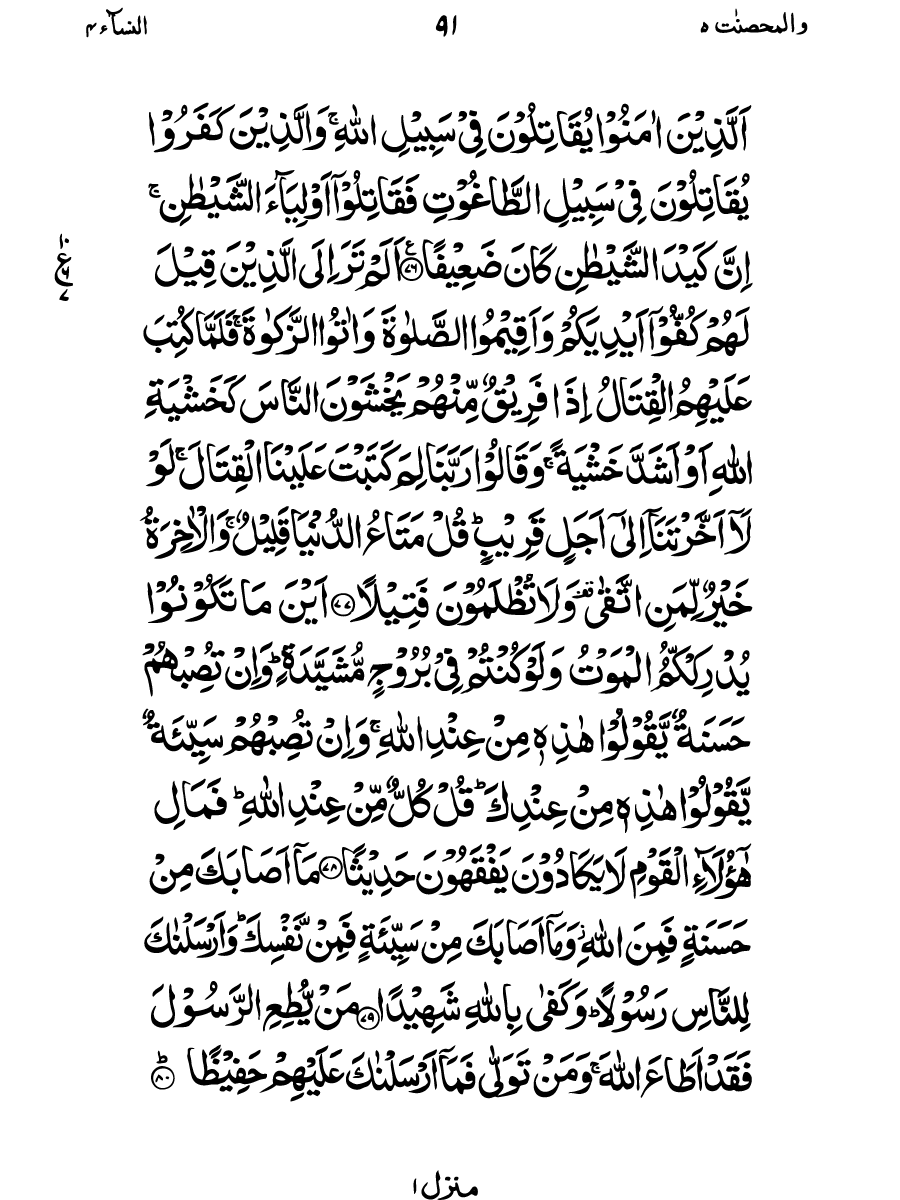 والمحصنٰت ۵ ۹۱ النسآء ۴
اَلَّذِيْنَ اٰمَنُوْا يُقَاتِلُوْنَ فِيْ سَبِيْلِ اللّٰهِ ۚ وَالَّذِيْنَ كَفَرُوْا
يُقَاتِلُوْنَ فِيْ سَبِيْلِ الطَّاغُوْتِ فَقَاتِلُوْۤا اَوْلِيَآءَ الشَّيْطٰنِ ۚ
اِنَّ كَيْدَ الشَّيْطٰنِ كَانَ ضَعِيْفًا ﴿۷۶﴾ اَلَمْ تَرَ اِلَى الَّذِيْنَ قِيْلَ
لَهُمْ كُفُّوْۤا اَيْدِيَكُمْ وَاَقِيْمُوا الصَّلٰوةَ وَاٰتُوا الزَّكٰوةَ ۚ فَلَمَّا كُتِبَ
عَلَيْهِمُ الْقِتَالُ اِذَا فَرِيْقٌ مِّنْهُمْ يَخْشَوْنَ النَّاسَ كَخَشْيَةِ
اللّٰهِ اَوْ اَشَدَّ خَشْيَةً ۚ وَقَالُوْا رَبَّنَا لِمَ كَتَبْتَ عَلَيْنَا الْقِتَالَ ۚ لَوْ
لَاۤ اَخَّرْتَنَاۤ اِلٰۤى اَجَلٍ قَرِيْبٍ ؕ قُلْ مَتَاعُ الدُّنْيَا قَلِيْلٌ ۚ وَالْاٰخِرَةُ
خَيْرٌ لِّمَنِ اتَّقٰى ۫ وَلَا تُظْلَمُوْنَ فَتِيْلًا ﴿۷۷﴾ اَيْنَ مَا تَكُوْنُوْا
يُدْرِكْكُّمُ الْمَوْتُ وَلَوْ كُنْتُمْ فِيْ بُرُوْجٍ مُّشَيَّدَةٍ ؕ وَاِنْ تُصِبْهُمْ
حَسَنَةٌ يَّقُوْلُوْا هٰذِهٖ مِنْ عِنْدِ اللّٰهِ ۚ وَاِنْ تُصِبْهُمْ سَيِّئَةٌ
يَّقُوْلُوْا هٰذِهٖ مِنْ عِنْدِكَ ؕ قُلْ كُلٌّ مِّنْ عِنْدِ اللّٰهِ ؕ فَمَالِ
هٰۤؤُلَآءِ الْقَوْمِ لَا يَكَادُوْنَ يَفْقَهُوْنَ حَدِيْثًا ﴿۷۸﴾ مَاۤ اَصَابَكَ مِنْ
حَسَنَةٍ فَمِنَ اللّٰهِ ؗ وَمَاۤ اَصَابَكَ مِنْ سَيِّئَةٍ فَمِنْ نَّفْسِكَ ؕ وَاَرْسَلْنٰكَ
لِلنَّاسِ رَسُوْلًا ؕ وَكَفٰى بِاللّٰهِ شَهِيْدًا ﴿۷۹﴾ مَنْ يُّطِعِ الرَّسُوْلَ
فَقَدْ اَطَاعَ اللّٰهَ ۚ وَمَنْ تَوَلّٰى فَمَاۤ اَرْسَلْنٰكَ عَلَيْهِمْ حَفِيْظًا ﴿۸۰﴾ ؕ
منزل ۱